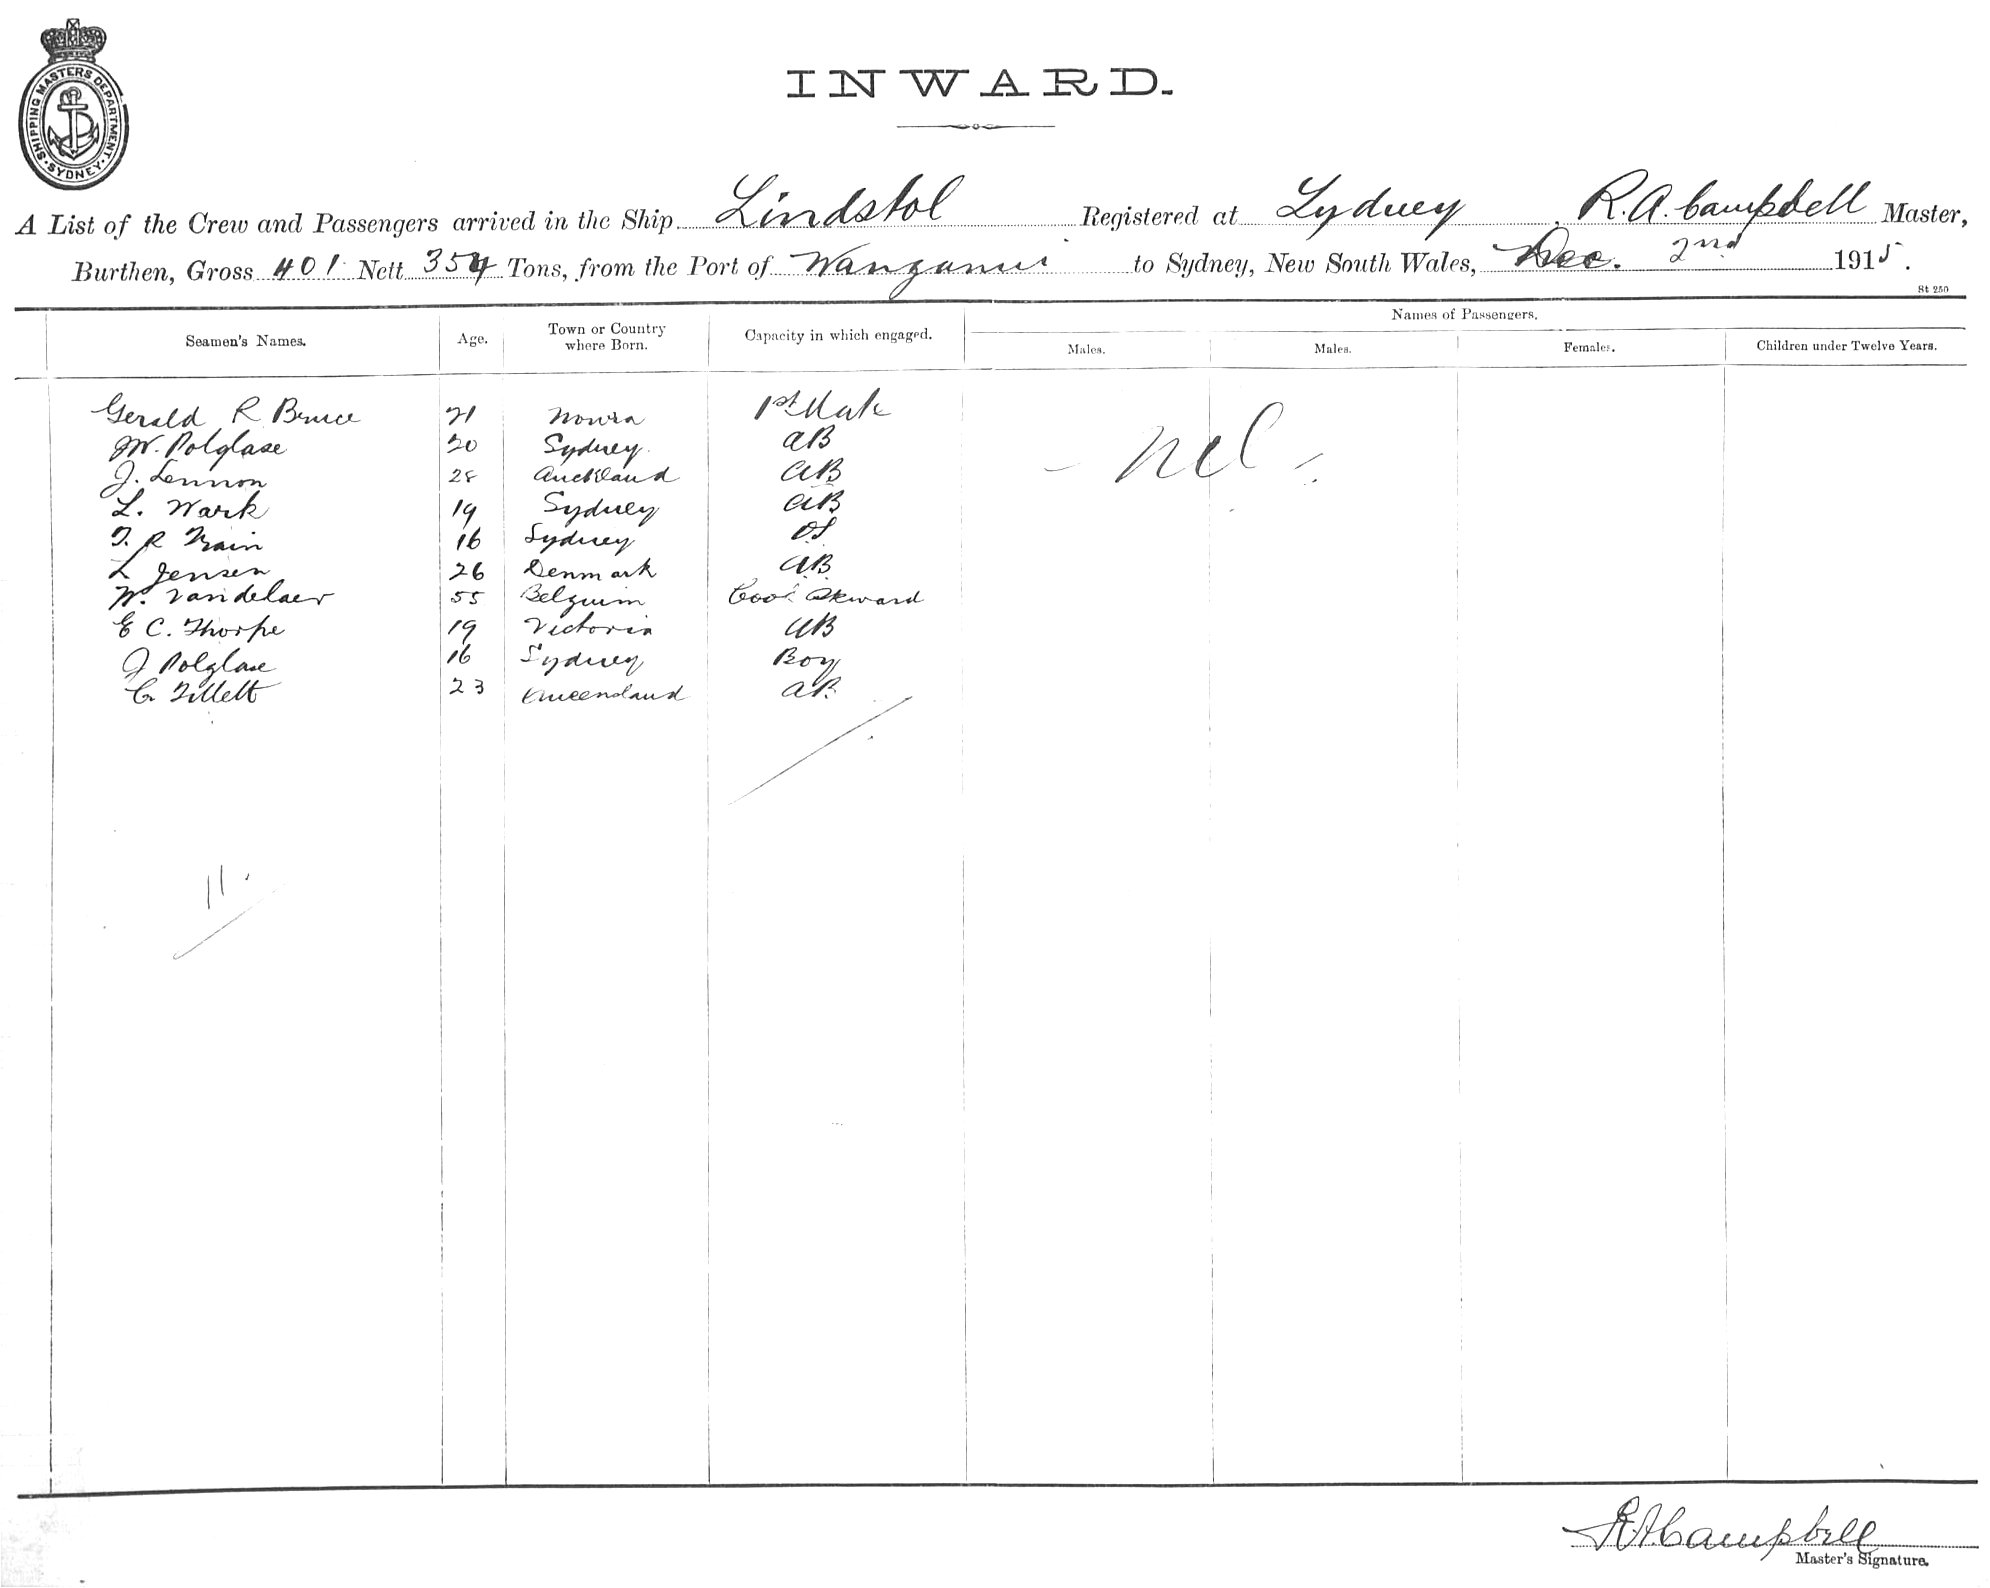 SHIPPING MASTERS DEPARTMENT · SYDNEY ·
INWARD.
A List of the Crew and Passengers arrived in the Ship Lindstol Registered at Sydney, R. A. Campbell Master,
Burthen, Gross 401 Nett 354 Tons, from the Port of Wanganui to Sydney, New South Wales, Dec. 2nd 1915.
St 250
Seamen's Names. Age. Town or Country where Born. Capacity in which engaged. Names of Passengers.
Males. Males. Females. Children under Twelve Years.
Gerald R Bruce 21 Nowra 1st Mate
W. Polglase 20 Sydney AB
J. Lennon 28 Auckland AB
L. Wark 19 Sydney AB
T. R Train 16 Sydney OS
L Jensen 26 Denmark AB
W. Vandelaer 55 Belguim Cook Steward
E C. Thorpe 19 Victoria AB
J Polglase 16 Sydney Boy
C. Tillett 23 Queensland AB
- Nil -
11.
R A Campbell
Master's Signature.